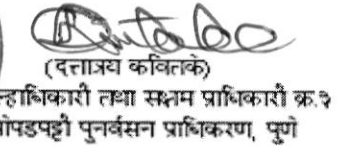 (दत्तात्रय कवितके)
न्हाधिकारी तथा सक्षम प्राधिकारी क्र.२
ोपडपट्टी पुनर्वसन प्राधिकरण, पुणे